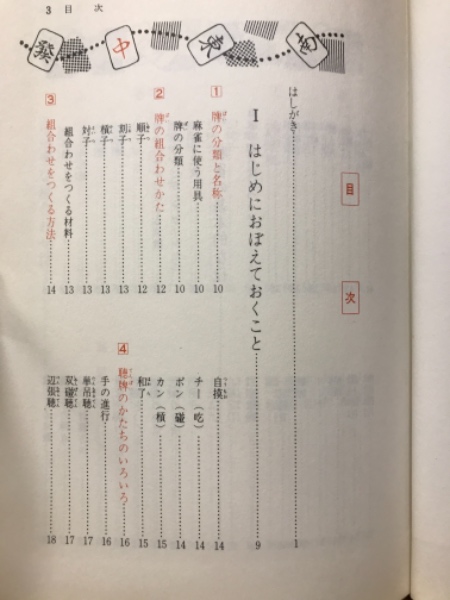 3 目 次
發 中 東 南
目 次
はしがき 1
I はじめにおぼえておくこと 9
1 牌の分類と名称 10
麻雀に使う用具 10
牌の分類 10
2 牌の組合わせかた 12
順子 12
刻子 13
槓子 13
対子 13
組合わせをつくる材料 13
3 組合わせをつくる方法 14
自摸 14
チー（吃） 14
ポン（碰） 14
カン（槓） 15
和了 15
4 聴牌のかたちのいろいろ 16
手の進行 16
単吊聴 17
双碰聴 17
辺張聴 18